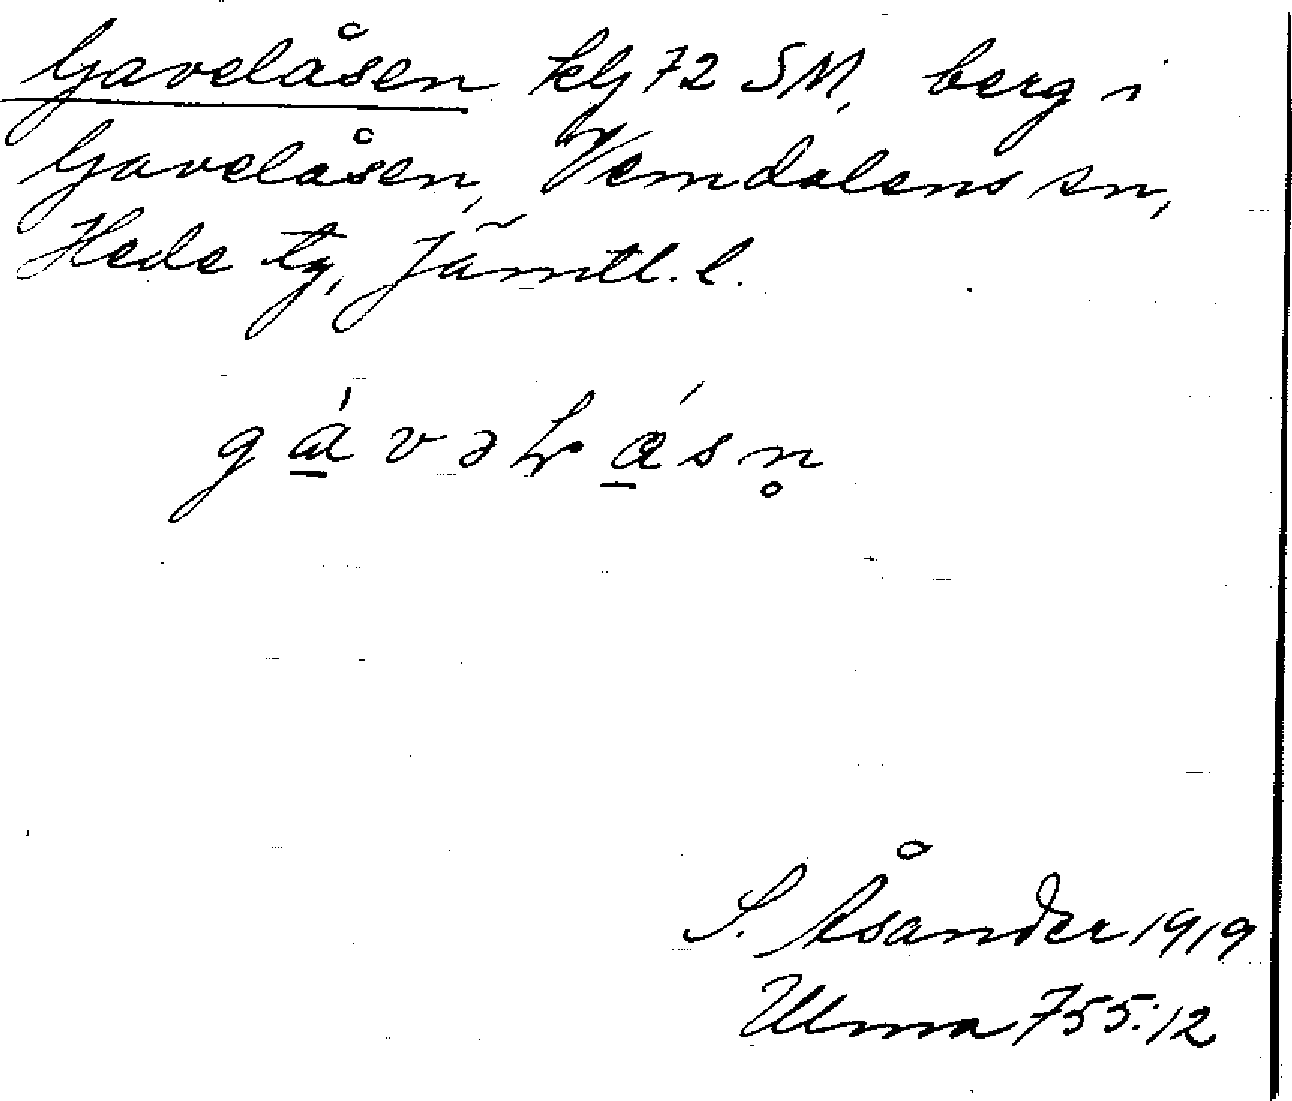 Gavelåsen klj 72 SM, berg i
Gavelåsen, Vemdalens sn,
Hede tg, Jämtl. l.
S. Åsander 1919
Ulma 755:12